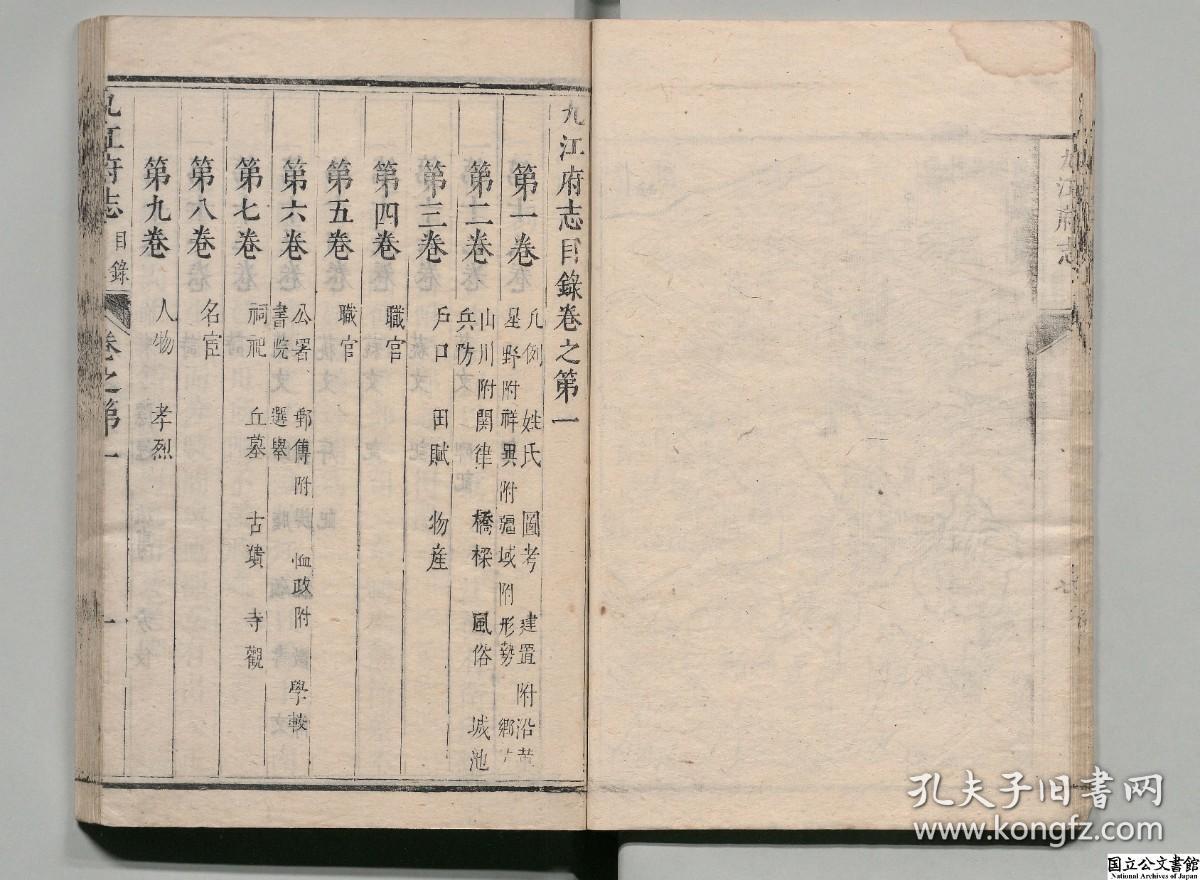 九江府志目錄卷之第一
第一卷 凡例 姓氏 圖考 建置附沿革
星野附祥異附疆域附形勢 鄉
第二卷 山川附關津 橋樑 風俗 城池
兵防
第三卷 戶口 田賦 物産
第四卷 職官
第五卷 職官
第六卷 公署 郵傳附 恤政附 學校
書院 選舉
第七卷 祠祀 丘墓 古蹟 寺觀
第八卷 名宦
第九卷 人物 孝烈
九江府志 目錄 卷之第一 一
九江府志
孔夫子旧书网
www.kongfz.com
国立公文書館
National Archives of Japan